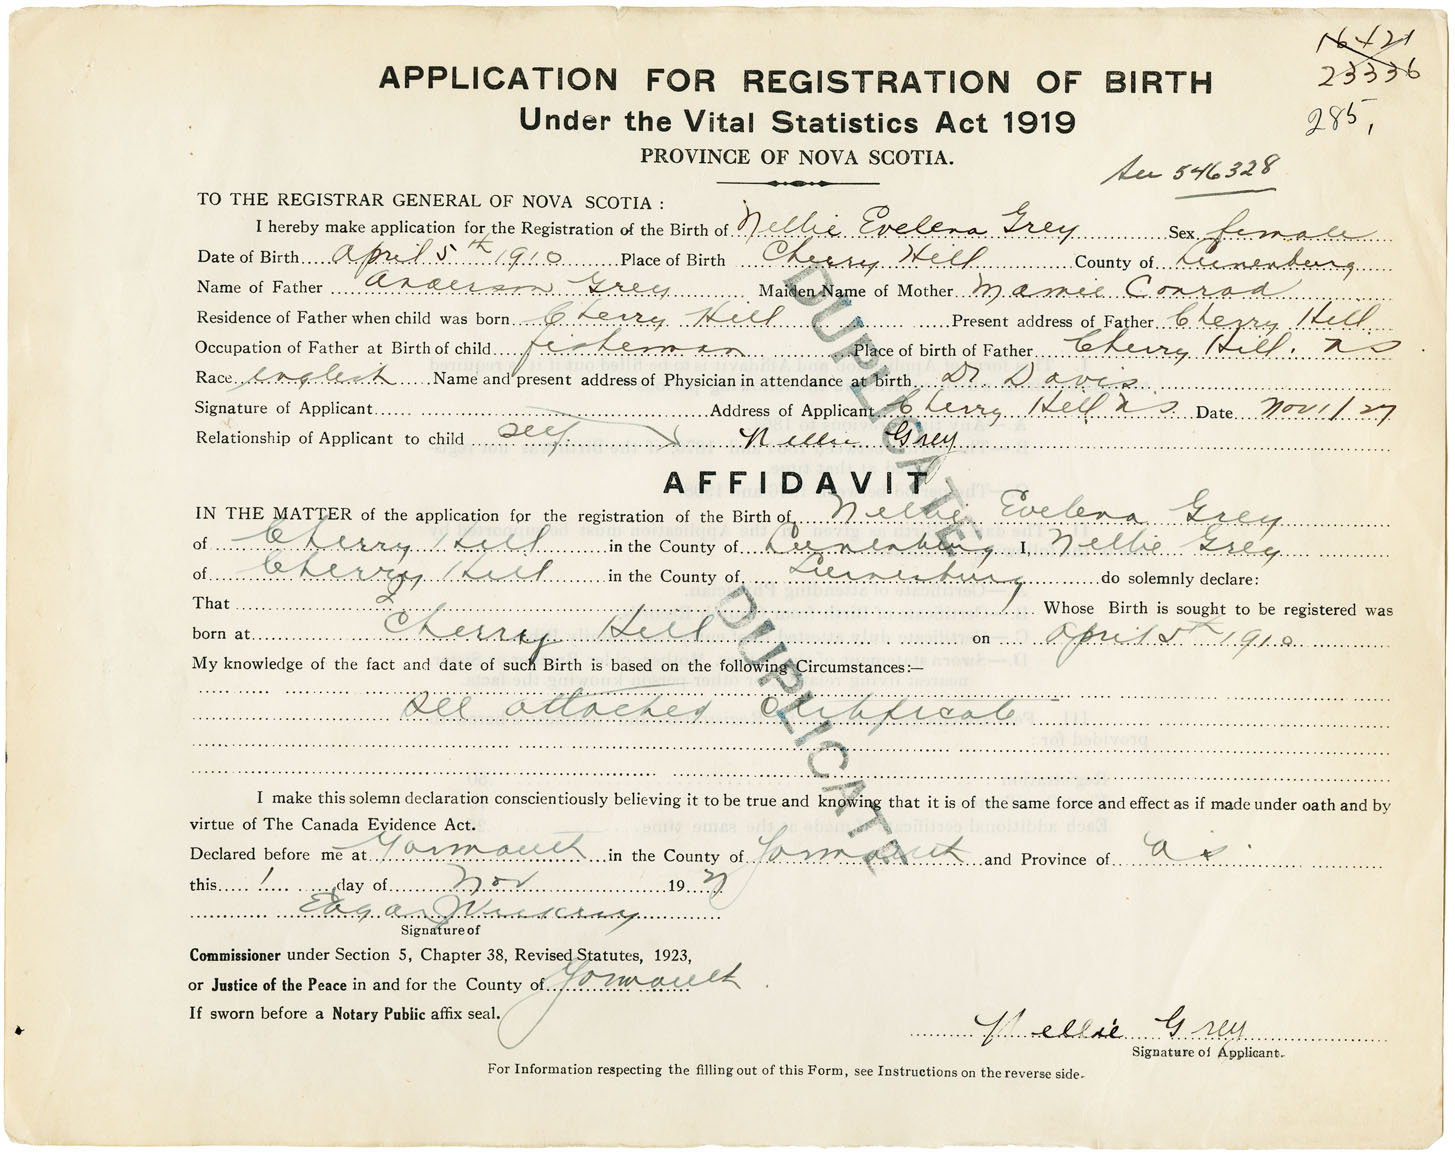 16421
23336
285,
APPLICATION FOR REGISTRATION OF BIRTH
Under the Vital Statistics Act 1919
PROVINCE OF NOVA SCOTIA.
546328
TO THE REGISTRAR GENERAL OF NOVA SCOTIA :
I hereby make application for the Registration of the Birth of Nellie Evelena Grey Sex female
Date of Birth April 5th 1910 Place of Birth Cherry Hill County of Lunenburg
Name of Father Anderson Grey Maiden Name of Mother Mamie Conrad
Residence of Father when child was born Cherry Hill Present address of Father Cherry Hill
Occupation of Father at Birth of child fisherman Place of birth of Father Cherry Hill. NS
Race english Name and present address of Physician in attendance at birth Dr Davis
Signature of Applicant Address of Applicant Cherry Hill NS Date Nov 1/27
Relationship of Applicant to child self Nellie Grey
DUPLICATE
AFFIDAVIT
IN THE MATTER of the application for the registration of the Birth of Nellie Evelena Grey
of Cherry Hill in the County of Lunenburg I, Nellie Grey
of Cherry Hill in the County of Lunenburg do solemnly declare:
That Whose Birth is sought to be registered was
born at Cherry Hill on April 5th 1910
My knowledge of the fact and date of such Birth is based on the following Circumstances:—
see attached Certificate
DUPLICATE
I make this solemn declaration conscientiously believing it to be true and knowing that it is of the same force and effect as if made under oath and by
virtue of The Canada Evidence Act.
Declared before me at Yarmouth in the County of Yarmouth and Province of NS
this 1 day of Nov 1927
Edgar
Signature of
Commissioner under Section 5, Chapter 38, Revised Statutes, 1923,
or Justice of the Peace in and for the County of Yarmouth
If sworn before a Notary Public affix seal.
Nellie Grey
Signature of Applicant.
For Information respecting the filling out of this Form, see Instructions on the reverse side.